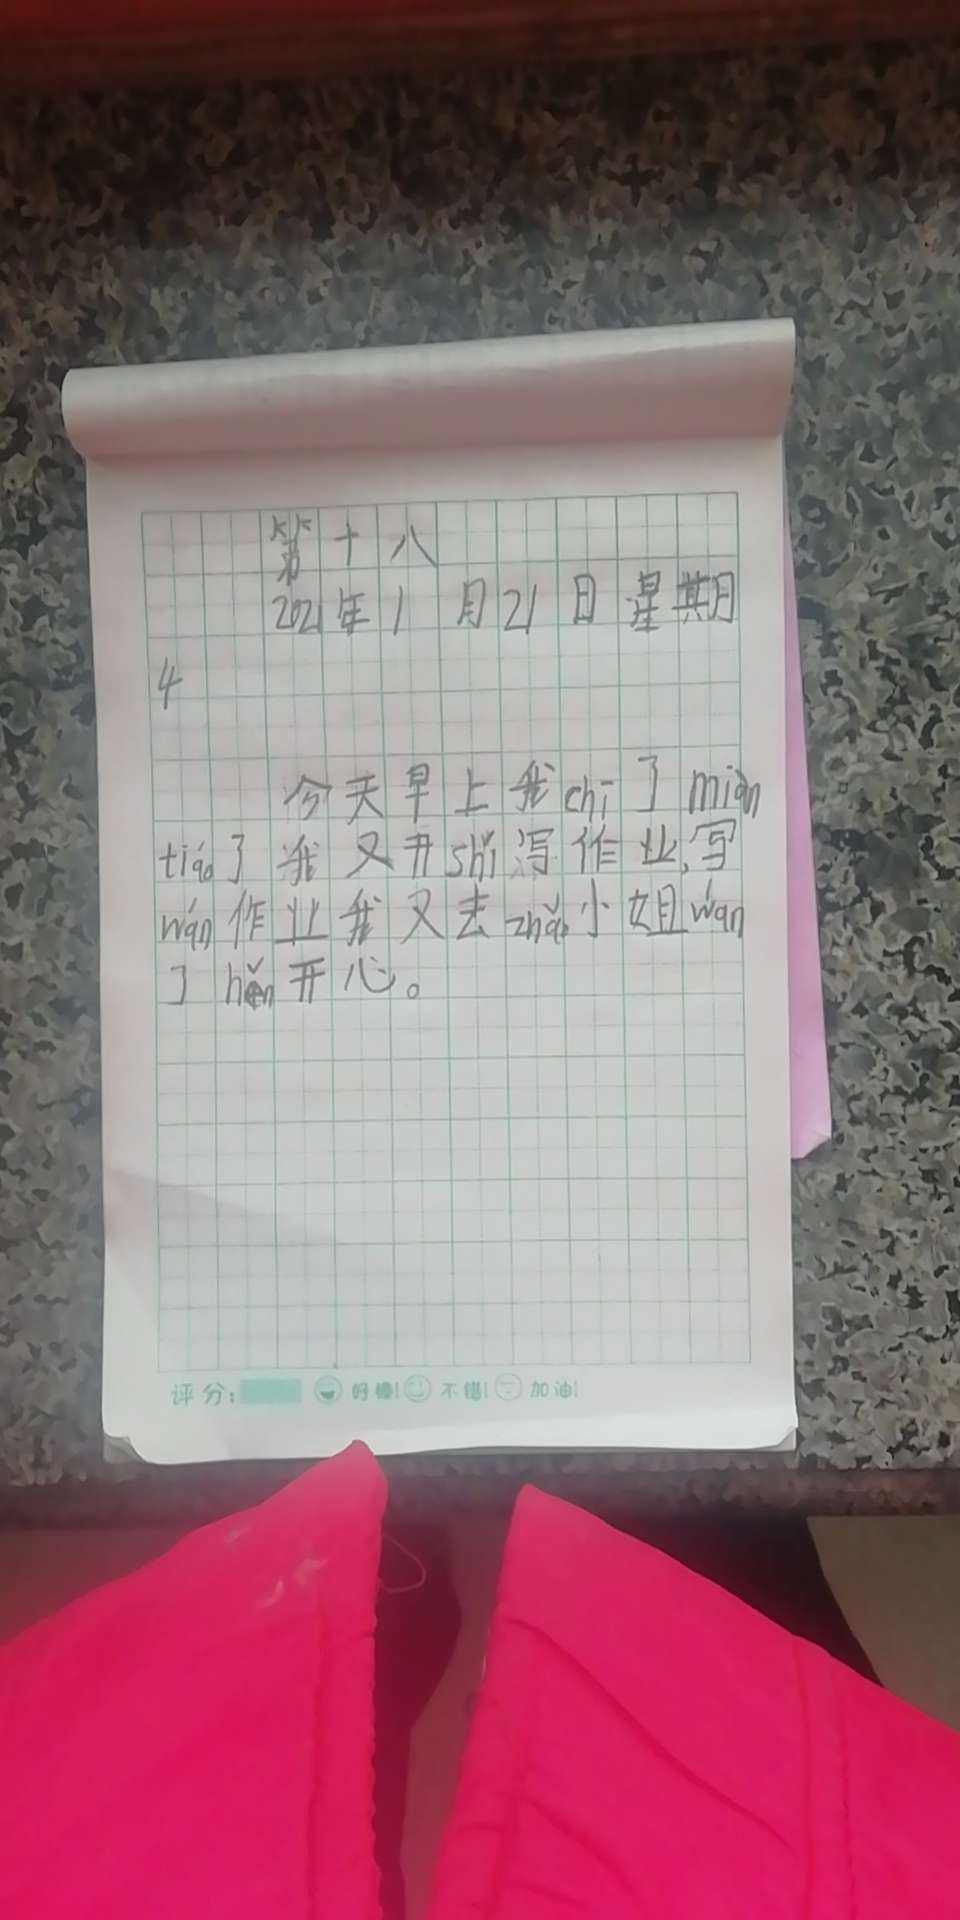 第十八
2021年1月21日星期
4
今天早上我chī了miàn
tiáo了我又开shǐ泻作业,写
wán作业我又去zhǎo小姐wán
了hěn开心。
评分: 好棒! 不错! 加油!